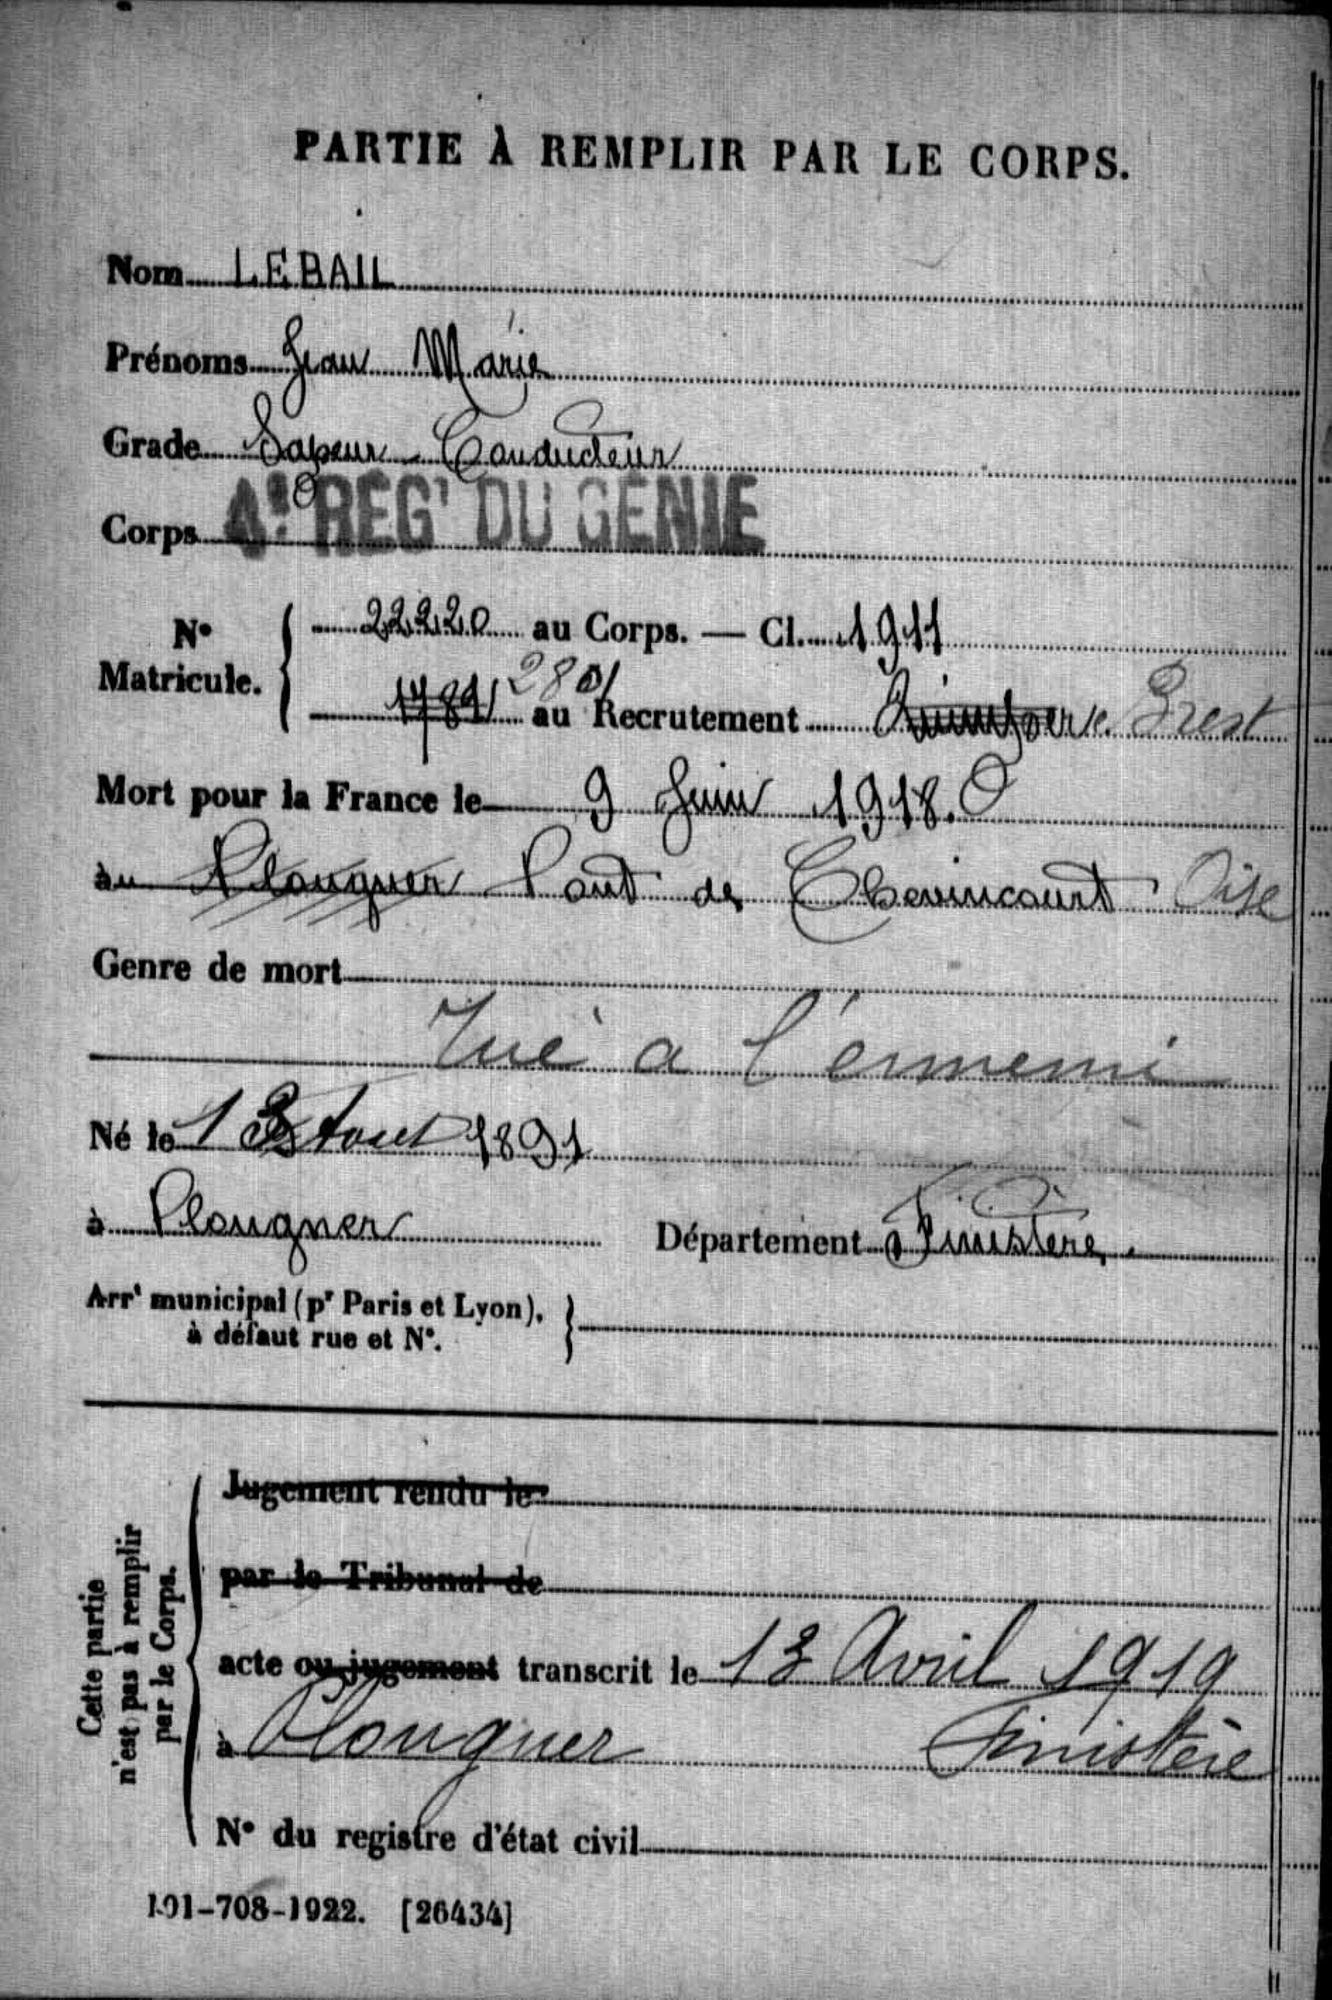 PARTIE À REMPLIR PAR LE CORPS.
Nom LE BAIL
Prénoms Jean Marie
Grade Sapeur-Conducteur
Corps 4e REGt DU GENIE
No Matricule. 22220 au Corps. — Cl. 1911
1789 2801 au Recrutement Quimper Brest
Mort pour la France le 9 Juin 1918.
au Plouguer Pont de Chevincourt Oise
Genre de mort
Tué a l'ennemi
Né le 13 Aout 1891
à Plouguer Département Finistère.
Arrt municipal (pr Paris et Lyon),
à défaut rue et N°.
Jugement rendu le
par le Tribunal de
acte ou jugement transcrit le 13 Avril 1919
à Plouguer Finistère
N° du registre d'état civil
Cette partie
n'est pas à remplir
par le Corps.
101-708-1922. [26434]